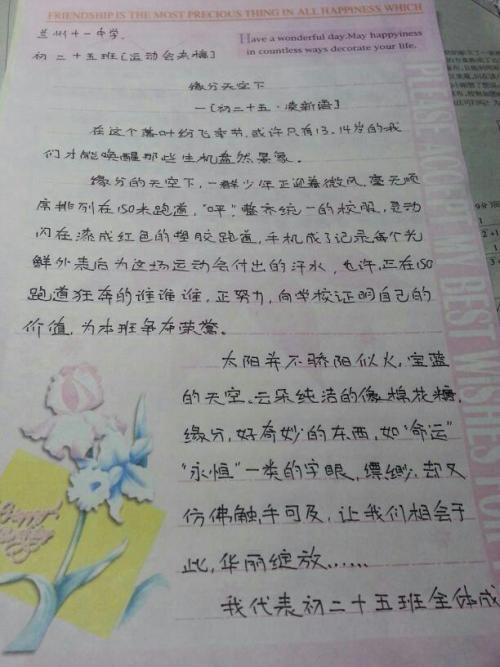 FRIENDSHIP IS THE MOST PRECIOUS THING IN ALL HAPPINESS WHICH
Have a wonderful day. May happyiness
in countless ways decorate your life.
兰州十一中学.
初二十五班〔运动会来稿〕
缘分天空下
—〔初二十五·凌新语〕
在这个落叶纷飞季节,或许只有13、14岁的我
们才能唤醒那些生机盎然景象。
缘分的天空下,一群少年正迎着微风,毫无顺
序排列在150米跑道,“呯”整齐统一的校服,灵动
闪在漆成红色的塑胶跑道,手机成了记录每个光
鲜外表后为这场运动会付出的汗水,也许,正在150
跑道狂奔的谁谁谁,正努力,向学校证明自己的
价值,为本班争夺荣誉。
太阳并不骄阳似火,宝蓝
的天空、云朵纯洁的像棉花糖,
缘分,好奇妙的东西,如“命运”
“永恒”一类的字眼,缥缈,却又
仿佛触手可及,让我们相会于
此,华丽绽放……
我代表初二十五班全体成
PLEASE ACCEPT MY BEST WISHES FOR
Happy